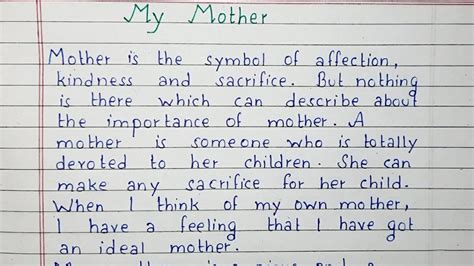 My Mother
Mother is the symbol of affection,
kindness and sacrifice. But nothing
is there which can describe about
the importance of mother. A
mother is someone who is totally
devoted to her children. She can
make any sacrifice for her child.
When I think of my own mother,
I have a feeling that I have got
an ideal mother.